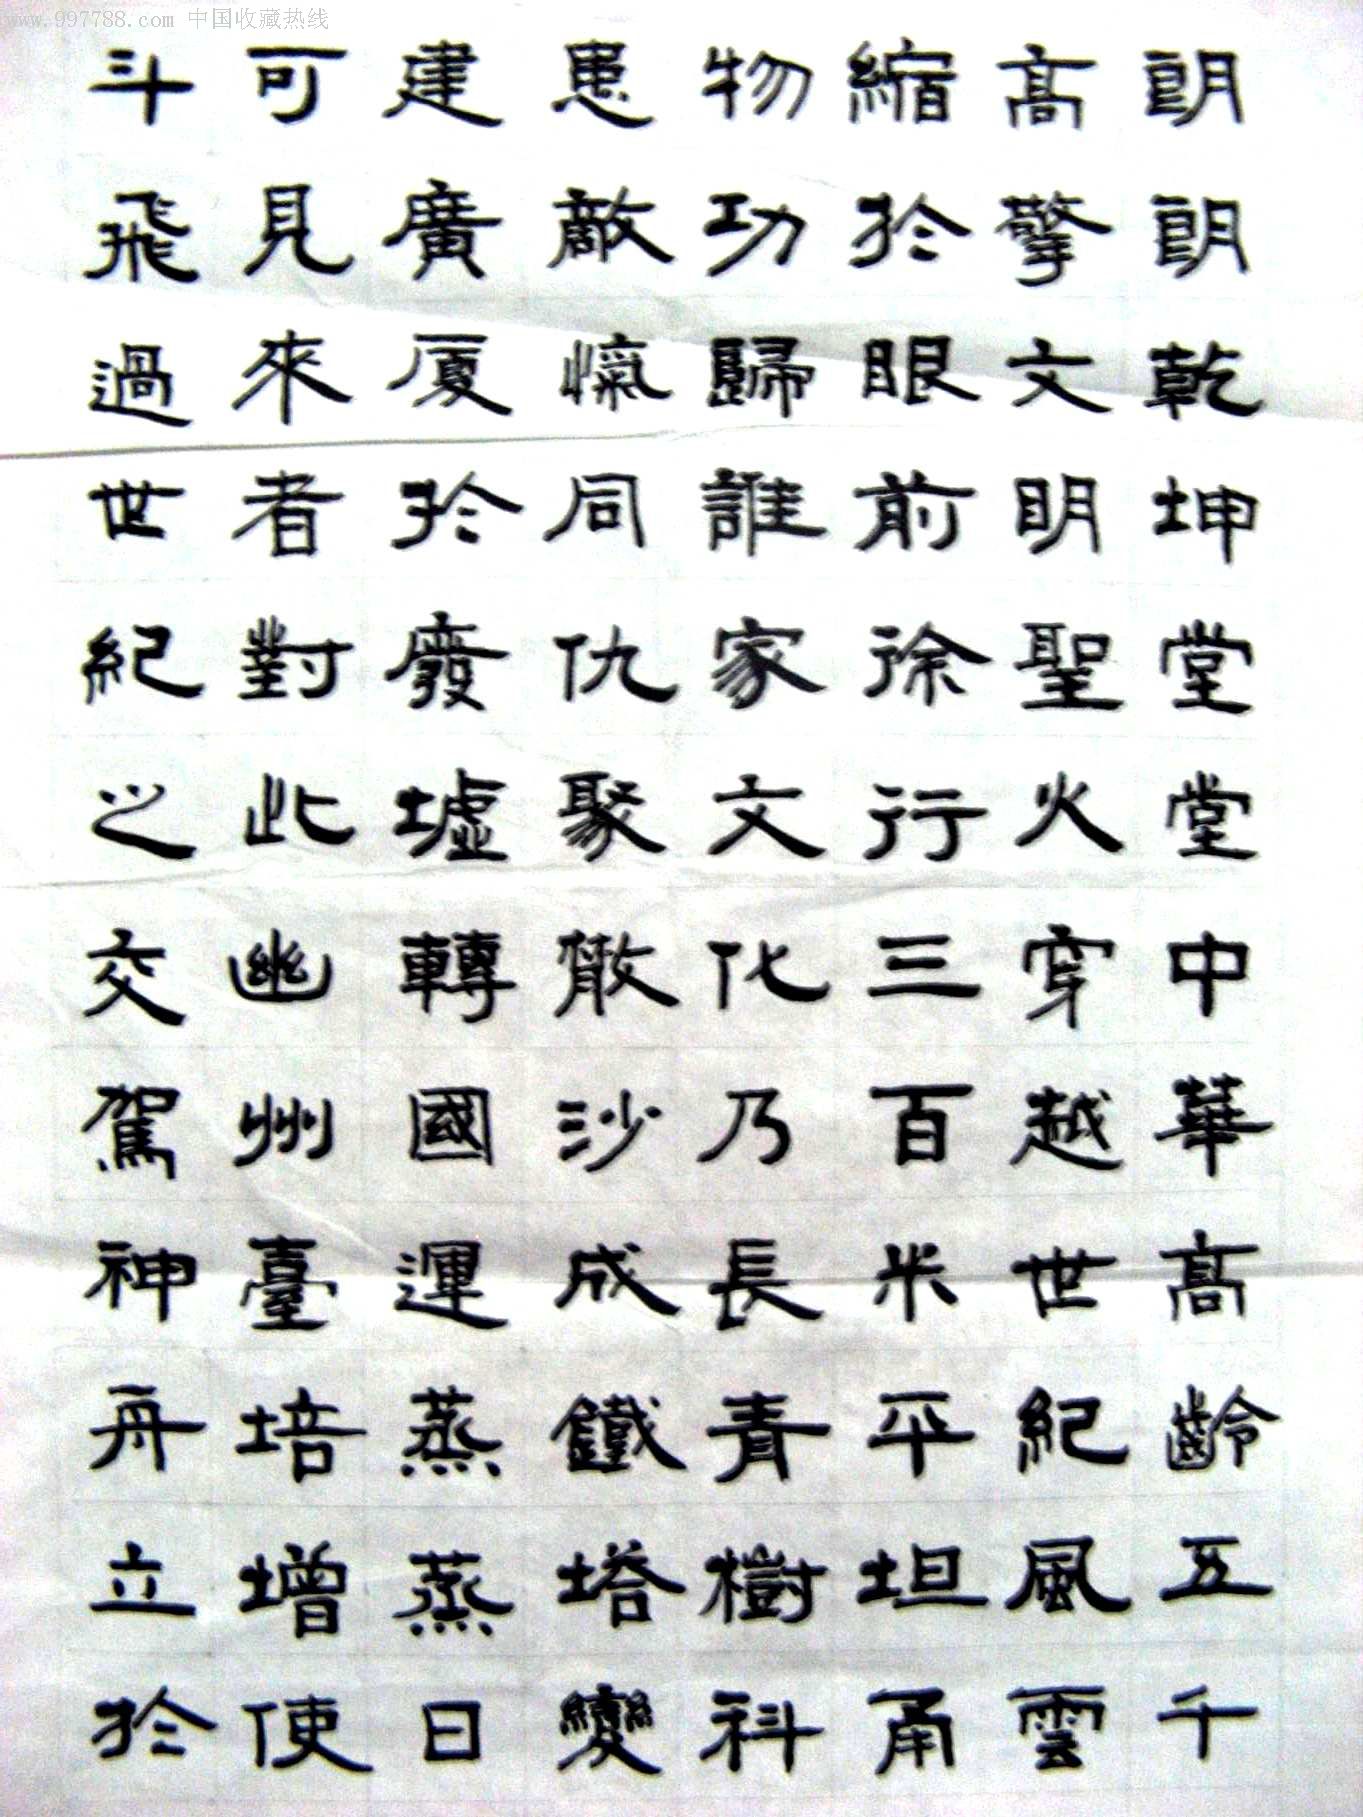 www.997788.com 中国收藏热线
朗朗乾坤堂堂中華高齡五千
高擎文明聖火穿越世紀風雲
縮於眼前徐行三百米平坦甬
物功歸誰家文化乃長青樹科
患敵愾同仇聚散沙成鐵塔變
建廣厦於廢墟轉國運蒸蒸日
可見來者對此幽州臺培增使
斗飛過世紀之交駕神舟立於